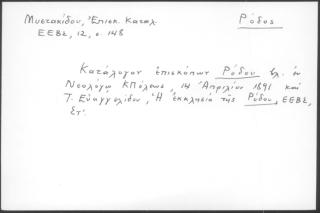 Μυστακίδου, Ἐπισκ. Καταλ.
Ρόδος
ΕΕΒΣ, 12, σ. 148
Κατάλογον ἐπισκόπων Ρόδου βλ. ἐν
Νεολόγῳ ΚΠόλεως, 14 Ἀπριλίου 1891 καὶ
Τ. Εὐαγγελίδου, Ἡ ἐκκλησία τῆς Ρόδου, ΕΕΒΣ,
Στ΄.